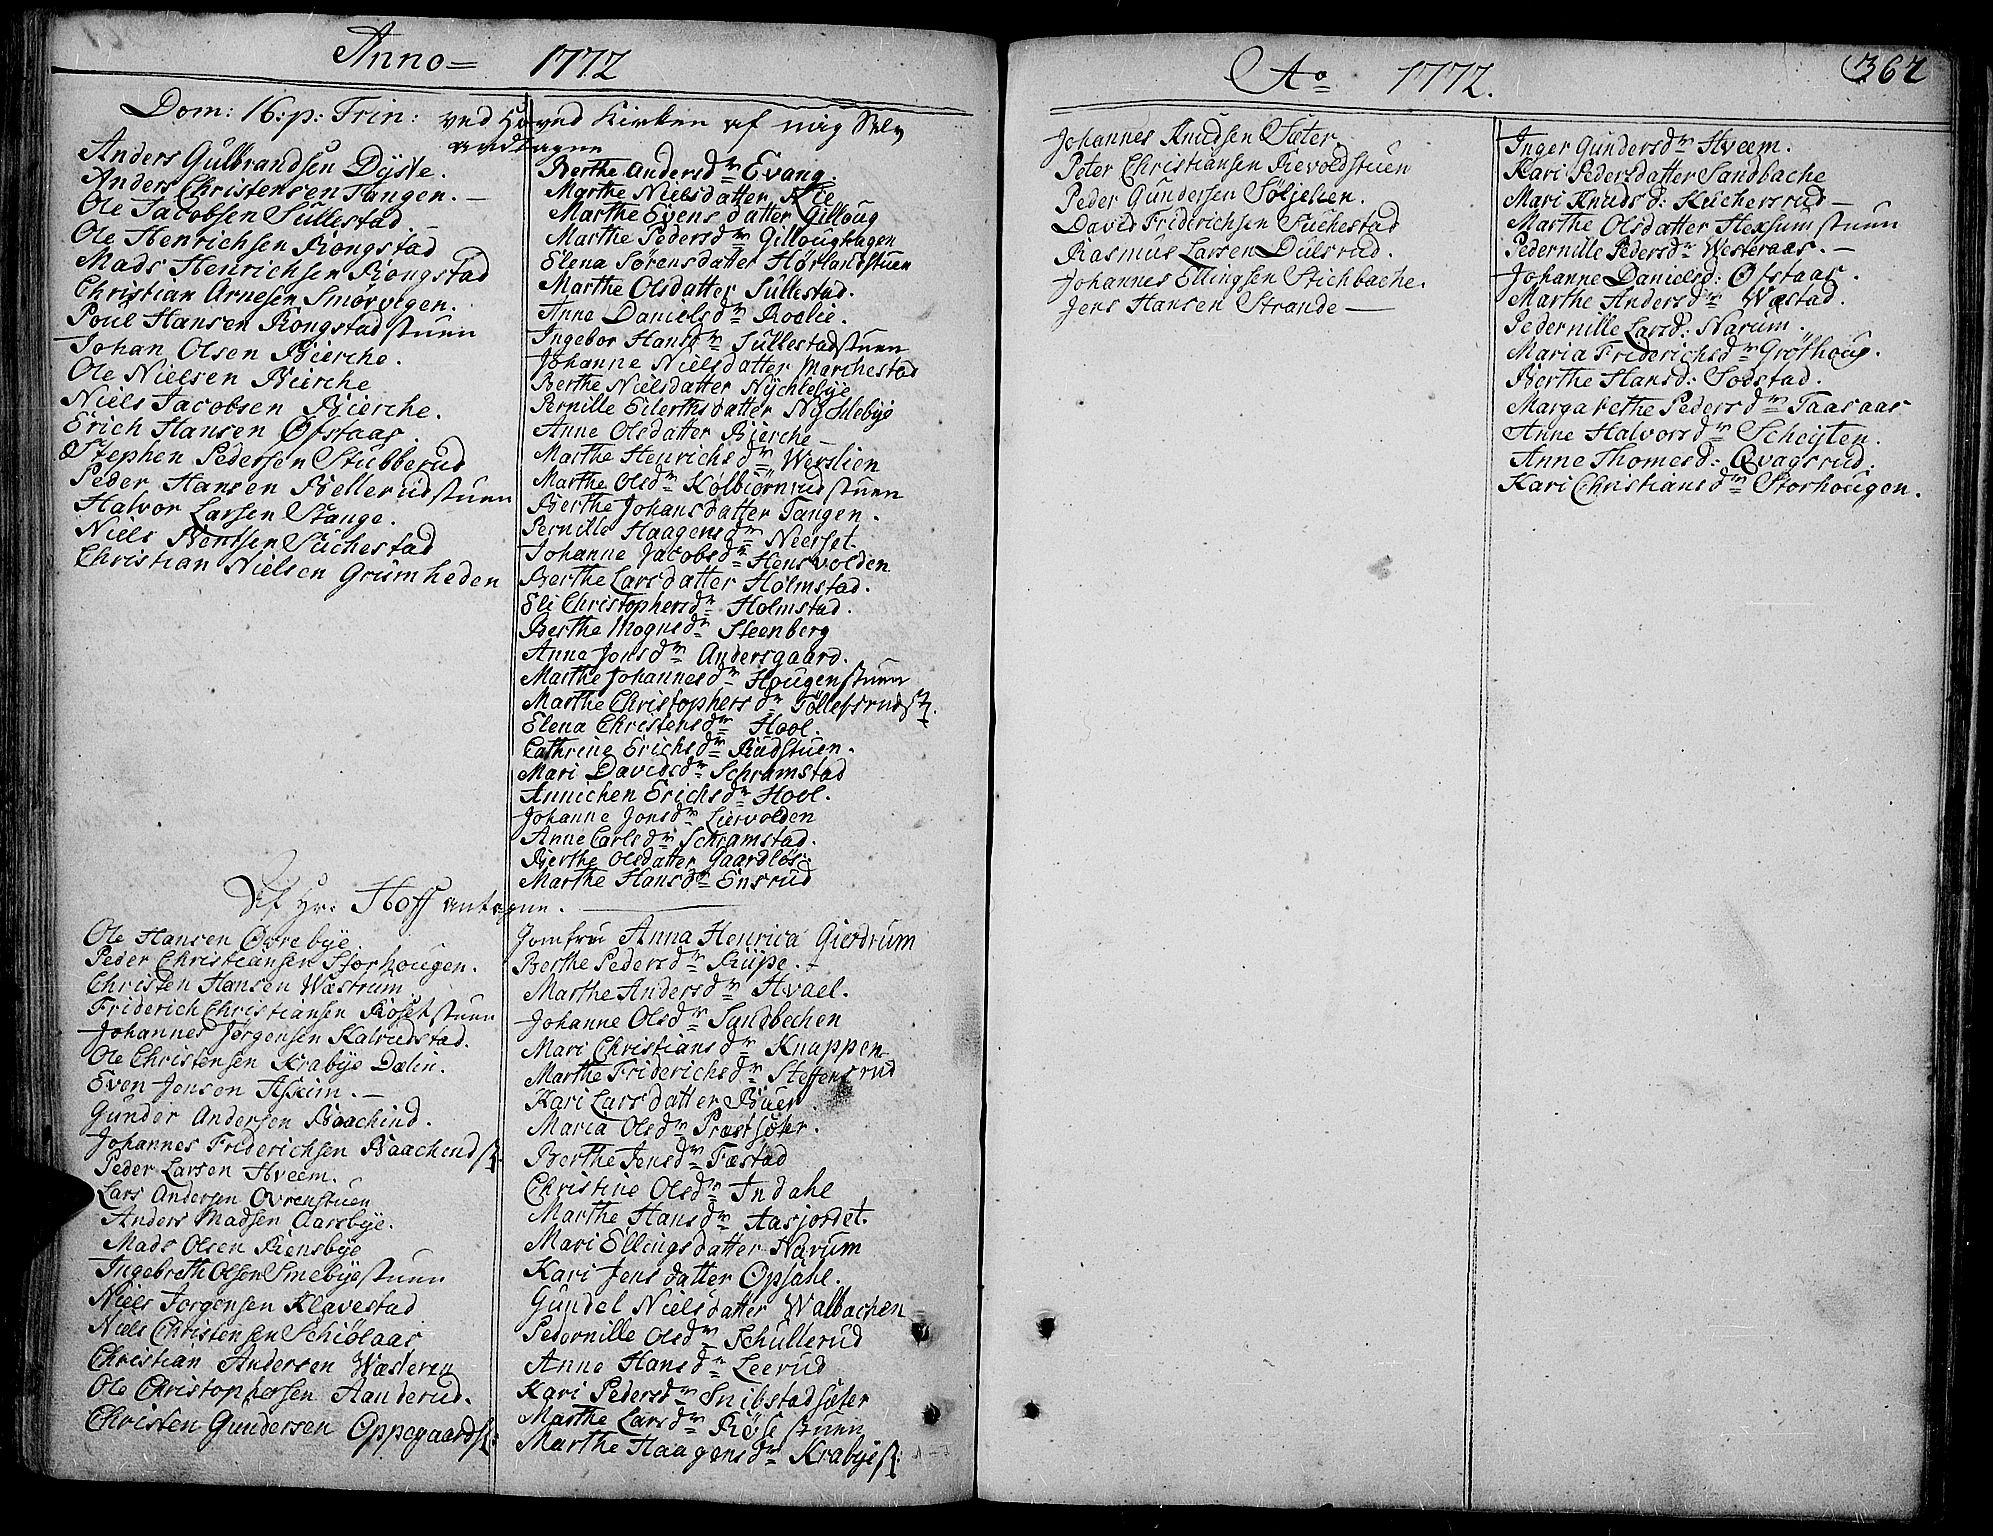 Anno 1772
Dom: 16: p: Trin: ved Hoved Kirken af mig Selv
andtagne
Anders Gulbrandsen Dyste.
Anders Christensen Tangen. —
Ole Jacobsen Sullestad
Ole Henrichsen Rongstad
Mads Henrichsen Rongstad
Christian Arnesen Smørvigen.
Poul Hansen Rongstadstuen
Johan Olsen Bierche.
Ole Nielsen Bierche
Niels Jacobsen Bierche.
Erich Hansen Ofstaas.
Stephen Pedersen Stubberud
Peder Hansen Bellerudstuen
Halvor Larsen Stange.
Niels Bentsen Suchestad
Christian Nielsen Grumheden
Berthe Andersdr Evang.
Marthe Nielsdatter Lie
Marthe Evensdatter Gilloug
Marthe Pedersdr Gilloughagen
Elena Sørensdatter Hørlandstuen
Marthe Olsdatter Sullestad.
Anne Danielsdr Roelie.
Ingebor Hansdr Sullestadstuen
Johanne Nielsdatter Marchestad
Berthe Nielsdatter Nychlebye
Pernille Eilerthsdatter Nychlebye
Anne Olsdatter Bierche
Marthe Henrichsdr Werslien
Marthe Olsdr Kolbiørnrudstuen
Berthe Johansdatter Tangen.
Pernille Haagensdr Neerset
Johanne Jacobsdr Hensvolden
Berthe Larsdatter Holmstad.
Eli Christophersdr Holmstad.
Berthe Mognsdr Steenberg
Anne Jonsdr Andersgaard.
Marthe Johannesdr Hougenstuen
Marthe Christophersdr Tøllefsrudst.
Elena Christensdr Hool.
Cathrine Erichsdr Rudstuen.
Mari Davidsdr Schramstad
Annichen Erichsdr Hool.
Johanne Jonsdr Liervolden
Anne Carlsdr Schramstad.
Berthe Olsdatter Gaardløs.
Marthe Hansdr Ensrud
Af Hr: Hoff antagne.
Ole Hansen Øvrebye
Peder Christiansen Storhougen.
Christen Hansen Wæstrum
Friderich Christiansen Rosetstuen
Johannes Jørgensen Kalrudstad.
Ole Christensen Krabye Dælin.
Even Jensen Askim. —
Gunder Andersen Baachind.
Johannes Friderichsen Baachendst.
Peder Larsen Hveem.
Lars Andersen Ovrenstuen
Anders Madsen Aarsbye.
Mads Olsen Rensbye
Ingebreth Olsen Smebyestuen
Niels Jorgensen Klavestad
Niels Christensen Schiølaas
Christian Andersen Wæsteren
Ole Christophersen Aanderud.
Christen Gundersen Oppegaardst:
Jomfru Anna Henrica Gierdrum
Berthe Pedersdr Rüpe.
Marthe Andersdr Hvael.
Johanne Olsdr Sandbechen
Mari Christiansdr Knappen
Marthe Friderichsdr Steffensrud
Kari Larsdatter Buer
Maria Olsdr Præstsæter.
Berthe Jensdr Fæstad
Christine Olsdr Indahl
Marthe Hansdr Aasjordet.
Mari Ellingsdatter Narum
Kari Jensdatter Opsahl.
Gundel Nielsdatter Walbachen
Pedernille Olsdr Schullerud
Anne Hansdr Leerud
Kari Pedersdr Snibstadsæter
Marthe Larsdr Røsestuen
Marthe Haagensdr Krabyest:
Ao 1772.
367
Johannes Knudsen Sæter.
Peter Christiansen Rievoldstuen
Peder Gundersen Søljelien.
David Friderichsen Suckestad
Rasmus Larsen Dulsrud.
Johannes Ellingsen Stichbache.
Jens Hansen Strande —
Inger Gundersdr Hveem.
Kari Pedersdatter Sandbache
Mari Knudsd: Kuchersrud —
Marthe Olsdatter Hexsumstuen
Pedernille Pedersdr Westeraas. —
Johanne Danielsd: Ofstaas.
Marthe Andersdr Wæstad.
Pedernille Larsd: Narum.
Maria Friderichsdr Grøthoug.
Berthe Hansd: Sodstad.
Margarethe Pedersdr Taasaas
Anne Halvorsdr Scheyten.
Anne Thomesd: Qvagsrud.
Kari Christiansdr Storhougen.